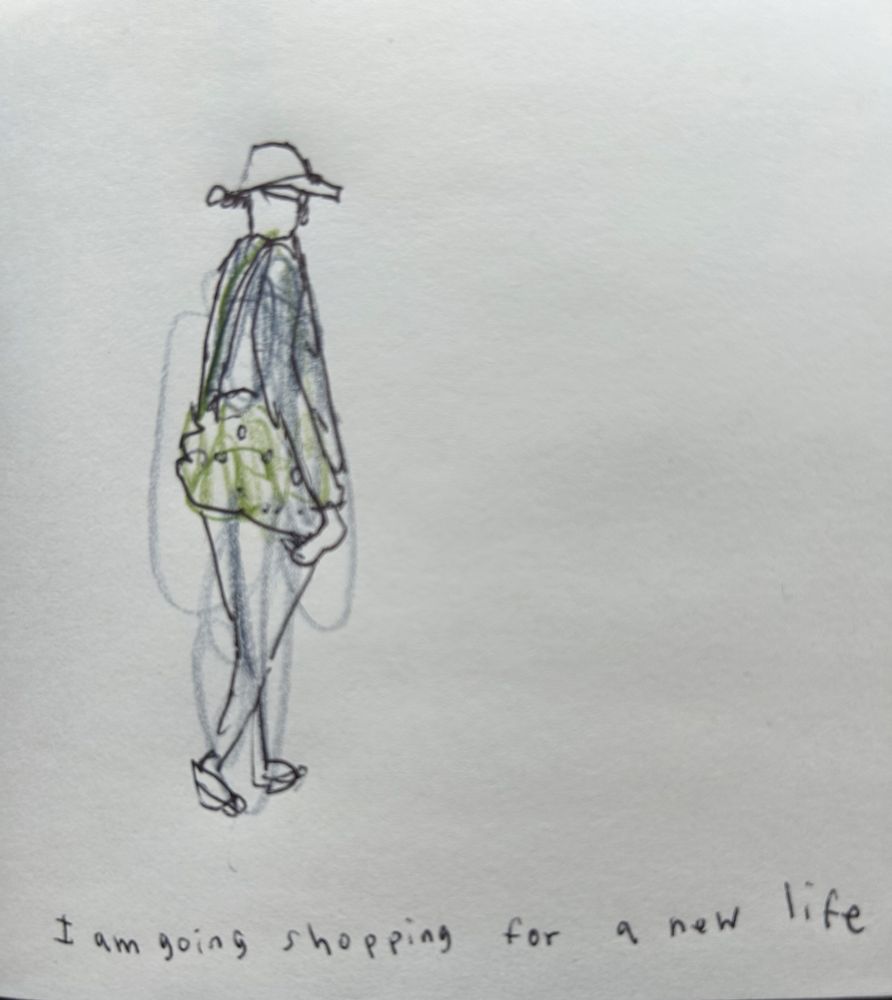 I am going shopping for a new life